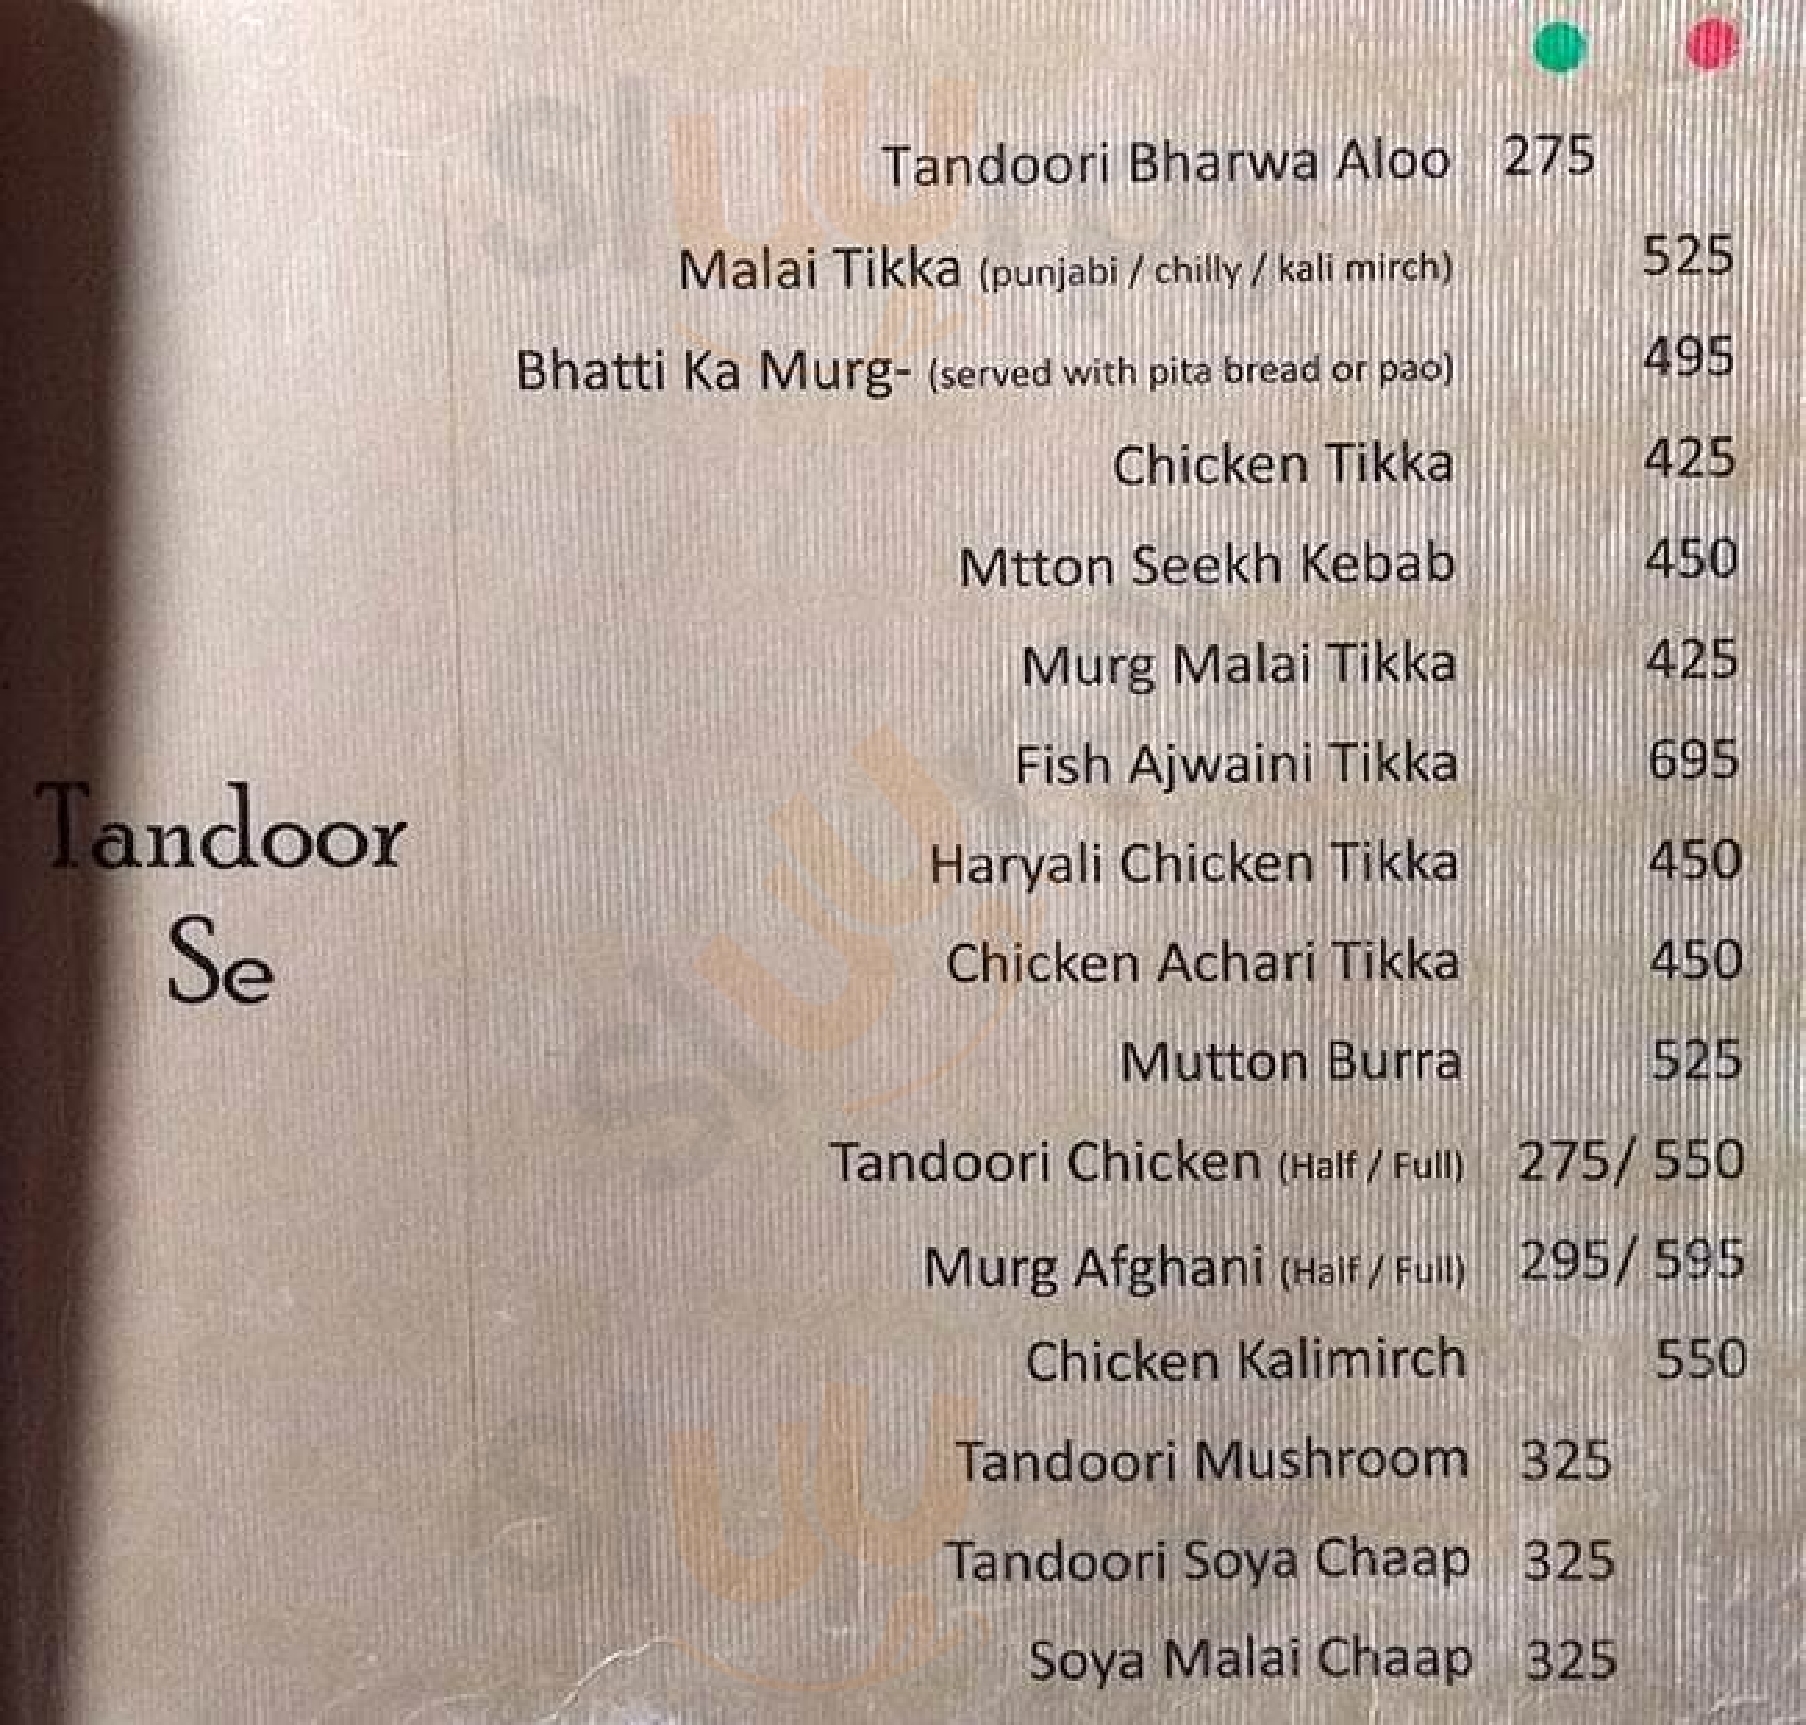 Tandoor
Se
Tandoori Bharwa Aloo 275
Malai Tikka (punjabi / chilly / kali mirch) 525
Bhatti Ka Murg- (served with pita bread or pao) 495
Chicken Tikka 425
Mtton Seekh Kebab 450
Murg Malai Tikka 425
Fish Ajwaini Tikka 695
Haryali Chicken Tikka 450
Chicken Achari Tikka 450
Mutton Burra 525
Tandoori Chicken (Half / Full) 275/ 550
Murg Afghani (Half / Full) 295/ 595
Chicken Kalimirch 550
Tandoori Mushroom 325
Tandoori Soya Chaap 325
Soya Malai Chaap 325